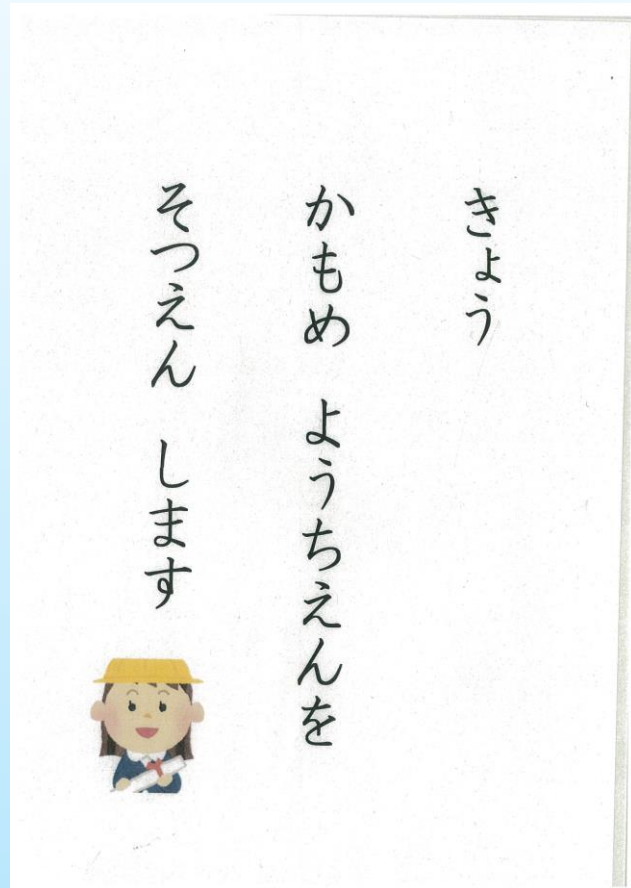 きょう
かもめ ようちえんを
そつえん します